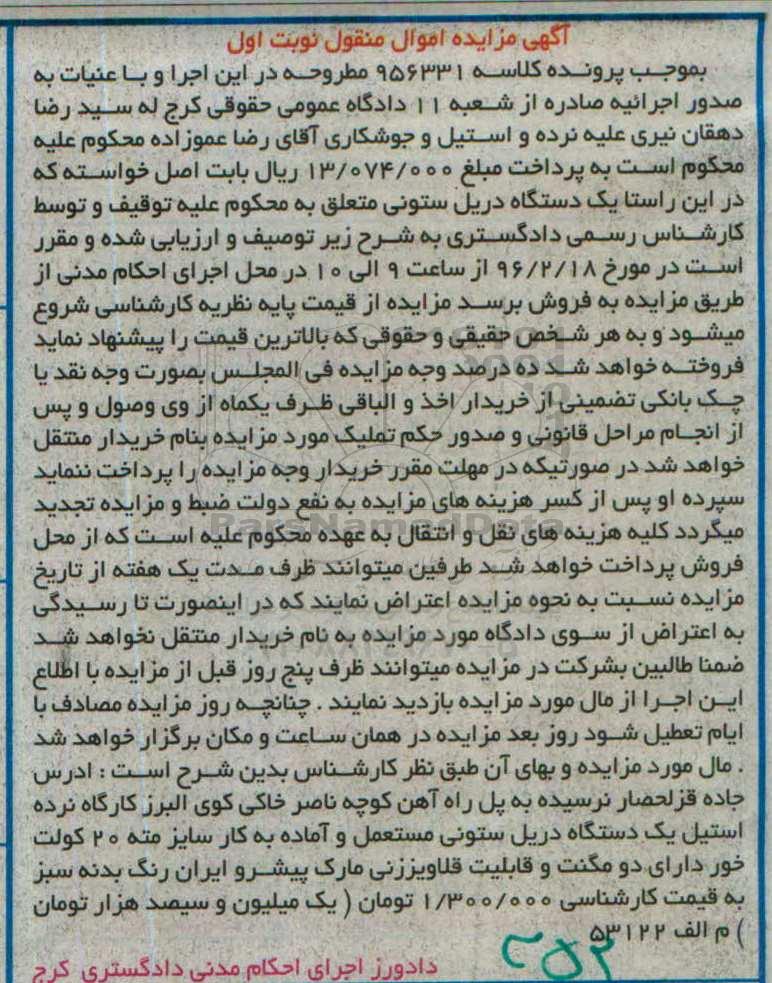 آگهی مزایده اموال منقول نوبت اول
بموجب پرونده کلاسه ۹۵۶۳۳۱ مطروحه در این اجرا و با عنیات به
صدور اجرائیه صادره از شعبه ۱۱ دادگاه عمومی حقوقی کرج له سید رضا
دهقان نیری علیه نرده و استیل و جوشکاری آقای رضا عموزاده محکوم علیه
محکوم است به پرداخت مبلغ ۱۳/۰۷۴/۰۰۰ ریال بابت اصل خواسته که
در این راستا یک دستگاه دریل ستونی متعلق به محکوم علیه توقیف و توسط
کارشناس رسمی دادگستری به شرح زیر توصیف و ارزیابی شده و مقرر
است در مورخ ۹۶/۲/۱۸ از ساعت ۹ الی ۱۰ در محل اجرای احکام مدنی از
طریق مزایده به فروش برسد مزایده از قیمت پایه نظریه کارشناسی شروع
میشود و به هر شخص حقیقی و حقوقی که بالاترین قیمت را پیشنهاد نماید
فروخته خواهد شد ده درصد وجه مزایده فی المجلس بصورت وجه نقد یا
چک بانکی تضمینی از خریدار اخذ و الباقی ظرف یکماه از وی وصول و پس
از انجام مراحل قانونی و صدور حکم تملیک مورد مزایده بنام خریدار منتقل
خواهد شد در صورتیکه در مهلت مقرر خریدار وجه مزایده را پرداخت ننماید
سپرده او پس از کسر هزینه های مزایده به نفع دولت ضبط و مزایده تجدید
میگردد کلیه هزینه های نقل و انتقال به عهده محکوم علیه است که از محل
فروش پرداخت خواهد شد طرفین میتوانند ظرف مدت یک هفته از تاریخ
مزایده نسبت به نحوه مزایده اعتراض نمایند که در اینصورت تا رسیدگی
به اعتراض از سوی دادگاه مورد مزایده به نام خریدار منتقل نخواهد شد
ضمنا طالبین بشرکت در مزایده میتوانند ظرف پنج روز قبل از مزایده با اطلاع
این اجرا از مال مورد مزایده بازدید نمایند . چنانچه روز مزایده مصادف با
ایام تعطیل شود روز بعد مزایده در همان ساعت و مکان برگزار خواهد شد
. مال مورد مزایده و بهای آن طبق نظر کارشناس بدین شرح است : ادرس
جاده قزلحصار نرسیده به پل راه آهن کوچه ناصر خاکی کوی البرز کارگاه نرده
استیل یک دستگاه دریل ستونی مستعمل و آماده به کار سایز مته ۲۰ کولت
خور دارای دو مگنت و قابلیت قلاویززنی مارک پیشرو ایران رنگ بدنه سبز
به قیمت کارشناسی ۱/۳۰۰/۰۰۰ تومان ( یک میلیون و سیصد هزار تومان
) م الف ۵۳۱۲۲
دادورز اجرای احکام مدنی دادگستری کرج
ParsNamadData